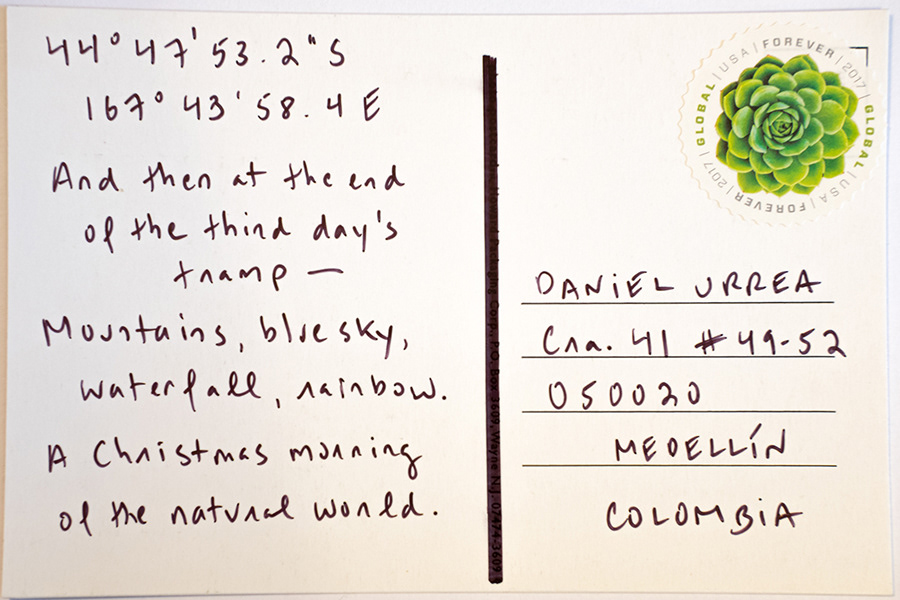 44° 47' 53.2" S
167° 43' 58.4 E
And then at the end
of the third day's
tramp —
Mountains, blue sky,
waterfall, rainbow.
A Christmas morning
of the natural world.
GLOBAL | USA | FOREVER | 2017 |
GLOBAL | USA | FOREVER | 2017 |
DANIEL URREA
Cra. 41 # 49-52
050020
MEDELLÍN
COLOMBIA
Packaging Corp., P.O. Box 3609, Wayne N.J. 07474-3609